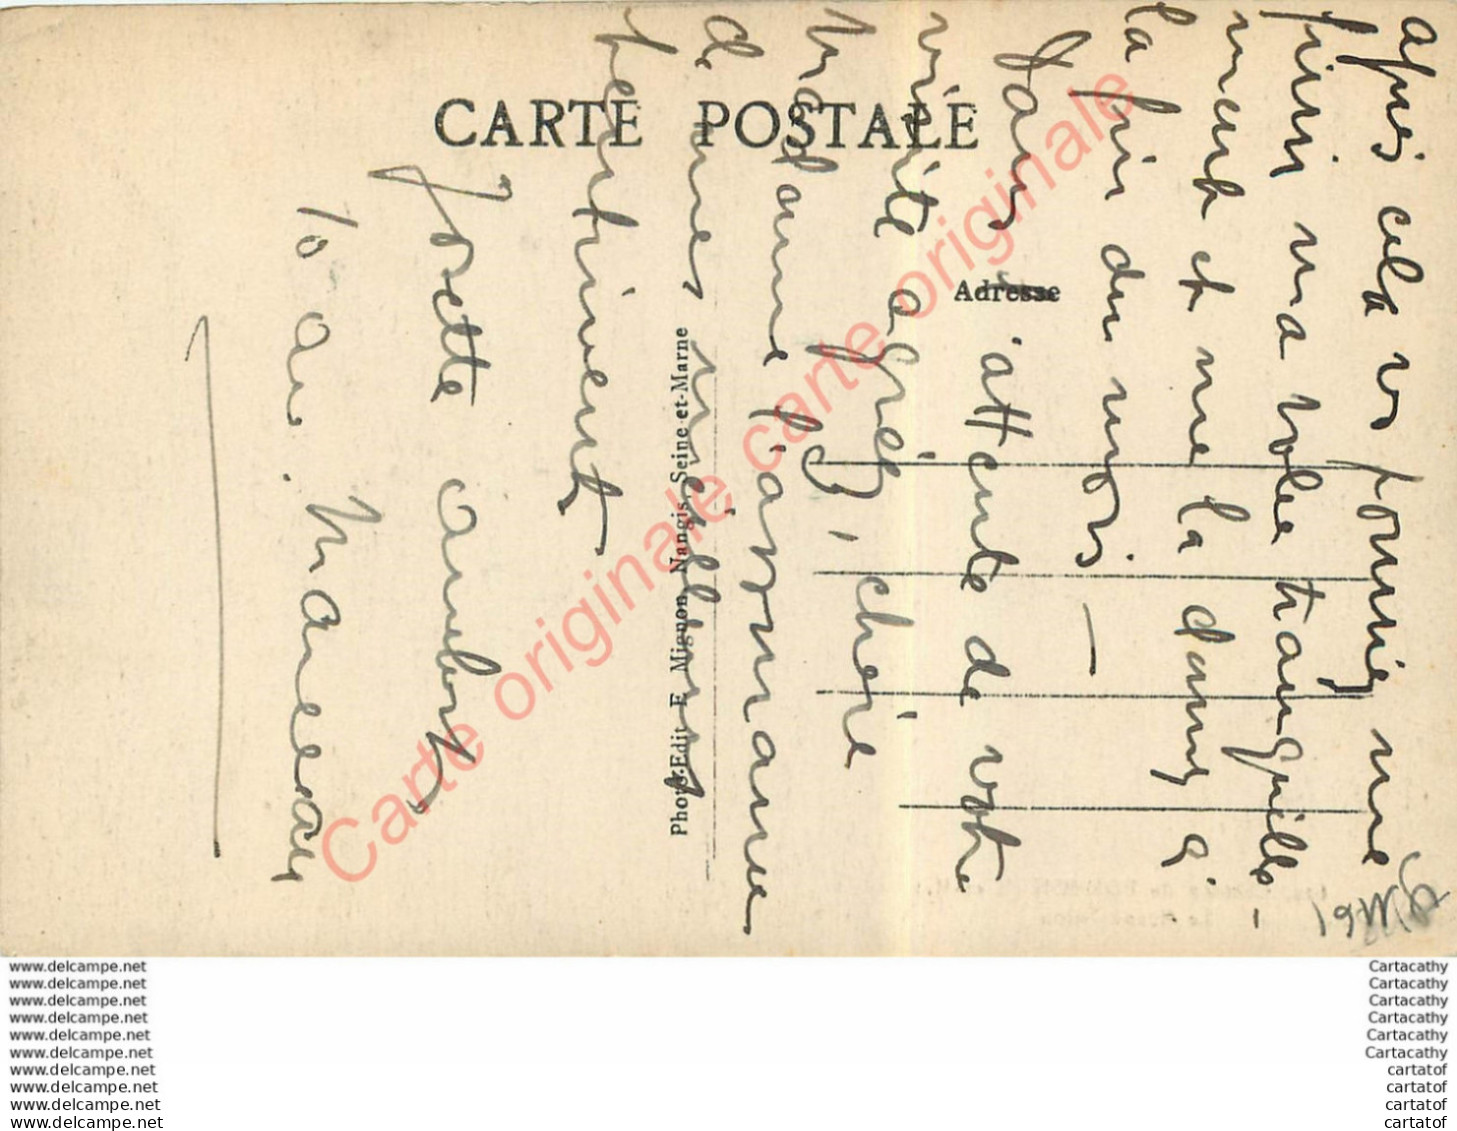 CARTE POSTALE
Adresse
Photo-Edit E Mignon Nangis Seine-et-Marne
après cela vs pourriez me
finir ma robe tranquille-
ment et me la donner à
la fin du mois —
Dans l'attente de votre
visite agréez, chère
Madame, l'assurance
de mes meilleurs
sentiments
Josette
10 av.
Carte originale carte originale
www.delcampe.net
www.delcampe.net
www.delcampe.net
www.delcampe.net
www.delcampe.net
www.delcampe.net
www.delcampe.net
www.delcampe.net
www.delcampe.net
www.delcampe.net
Cartacathy
Cartacathy
Cartacathy
Cartacathy
Cartacathy
Cartacathy
cartatof
cartatof
cartatof
cartatof